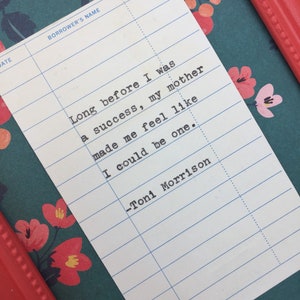 ATE BORROWER'S NAME
Long before I was
a success, my mother
made me feel like
I could be one.
-Toni Morrison